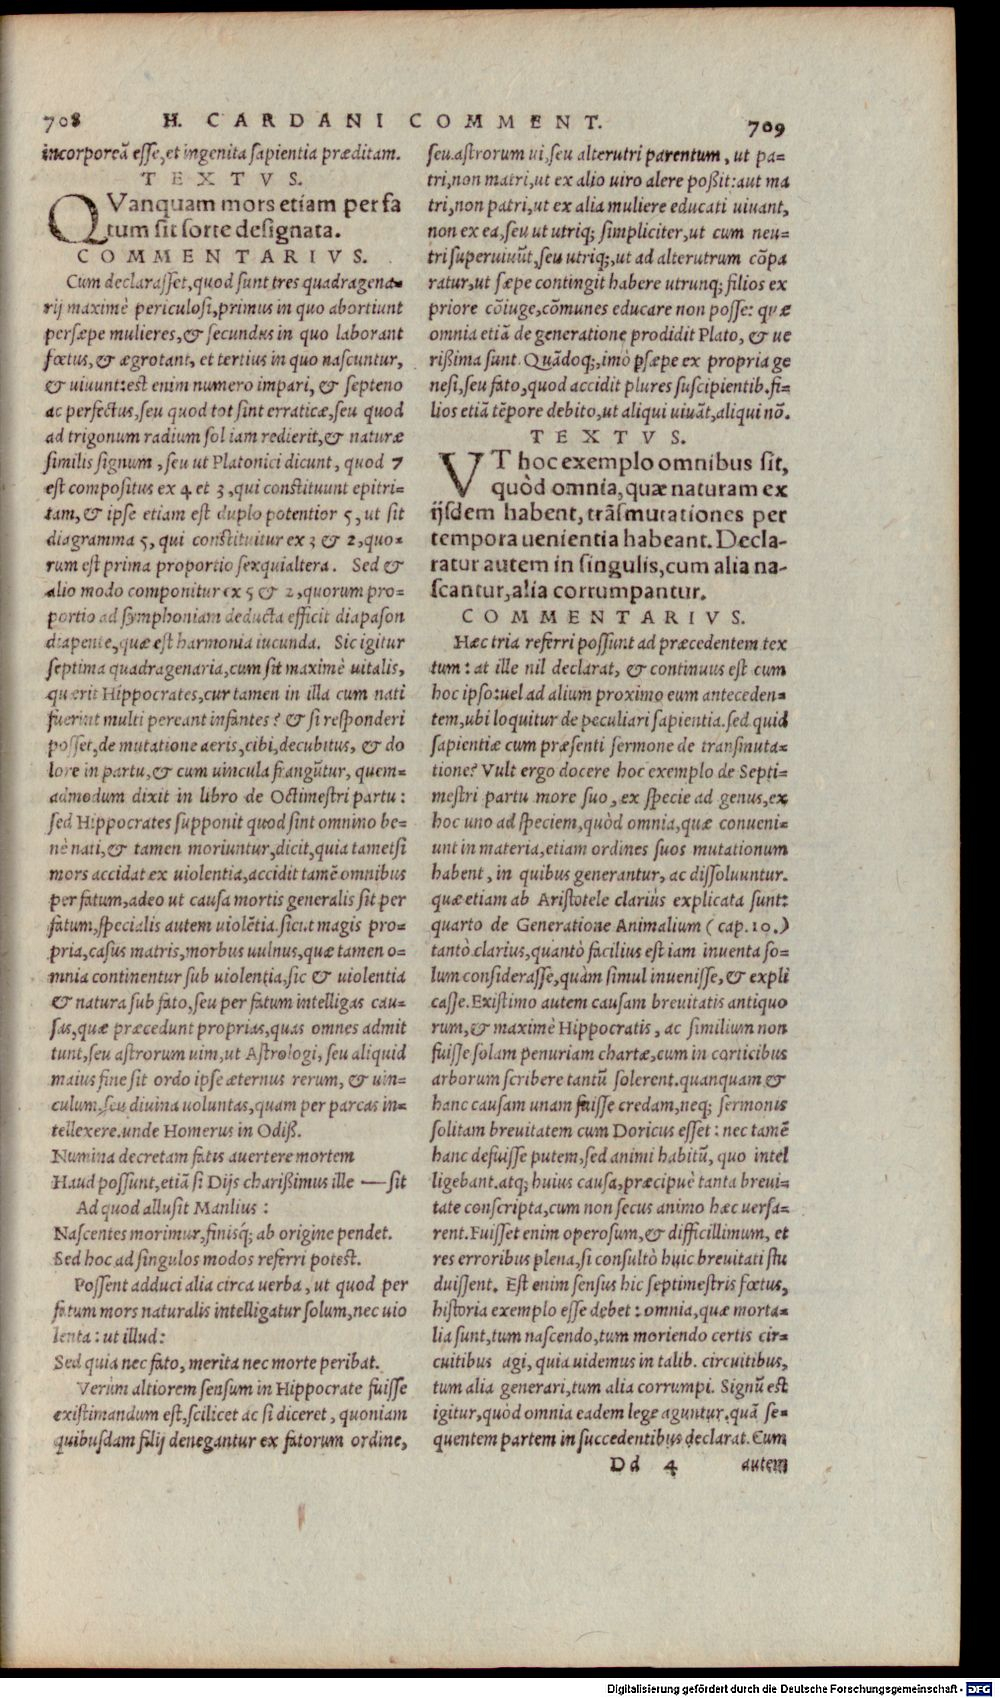 708 H. CARDANI COMMENT. 709
incorporeã esse, et ingenita sapientia præditam.
TEXTVS.
QVanquam mors etiam per fa
tum sit sorte designata.
COMMENTARIVS.
Cum declarasset, quod sunt tres quadragena-
rij maximè periculosi, primus in quo abortiunt
persæpe mulieres, & secundus in quo laborant
fœtus, & ægrotant, et tertius in quo nascuntur,
& uiuunt: est enim numero impari, & septeno
ac perfectus, seu quod tot sint erraticæ, seu quod
ad trigonum radium sol iam redierit, & naturæ
similis signum, seu ut Platonici dicunt, quod 7
est compositus ex 4 et 3, qui constituunt epitri-
tam, & ipse etiam est duplo potentior 5, ut sit
diagramma 5, qui constituitur ex 3 & 2, quo-
rum est prima proportio sexquialtera. Sed &
alio modo componitur ex 5 & 2, quorum pro-
portio ad symphoniam deducta efficit diapason
diapente, quæ est harmonia iucunda. Sic igitur
septima quadragenaria, cum sit maximè uitalis,
quærit Hippocrates, cur tamen in illa cum nati
fuerint multi pereant infantes? & si responderi
posset, de mutatione aeris, cibi, decubitus, & do
lore in partu, & cum uincula frangũtur, quem-
admodum dixit in libro de Octimestri partu:
sed Hippocrates supponit quod sint omnino be-
nè nati, & tamen moriuntur, dicit, quia tametsi
mors accidat ex uiolentia, accidit tamẽ omnibus
per fatum, adeo ut causa mortis generalis sit per
fatum, specialis autem uiolẽtia. sicut magis pro-
pria, casus matris, morbus uulnus, quæ tamen o-
mnia continentur sub uiolentia, sic & uiolentia
& natura sub fato, seu per fatum intelligas cau-
sas, quæ præcedunt proprias, quas omnes admit
tunt, seu astrorum uim, ut Astrologi, seu aliquid
maius fine sit ordo ipse æternus rerum, & uin-
culum, seu diuina uoluntas, quam per parcas in-
tellexere. unde Homerus in Odiß.
Numina decretam fatis auertere mortem
Haud possunt, etiã si Dijs charißimus ille — sit
Ad quod allusit Manlius:
Nascentes morimur, finisq́; ab origine pendet.
Sed hoc ad singulos modos referri potest.
Possent adduci alia circa uerba, ut quod per
fatum mors naturalis intelligatur solum, nec uio
lenta: ut illud:
Sed quia nec fato, merita nec morte peribat.
Verùm altiorem sensum in Hippocrate fuisse
existimandum est, scilicet ac si diceret, quoniam
quibusdam filij denegantur ex fatorum ordine,
seu astrorum ui, seu alterutri parentum, ut pa-
tri, non matri, ut ex alio uiro alere poßit: aut ma
tri, non patri, ut ex alia muliere educati uiuant,
non ex ea, seu ut utriq; simpliciter, ut cum neu-
tri superuiuũt, seu utriq;, ut ad alterutrum cõpa
ratur, ut sæpe contingit habere utrunq; filios ex
priore cõiuge, cõmunes educare non posse: quæ
omnia etiã de generatione prodidit Plato, & ue
rißima sunt. Quãdoq;, imò p̱sæpe ex propria ge
nesi, seu fato, quod accidit plures suscipientib. fi-
lios etiã tẽpore debito, ut aliqui uiuãt, aliqui nõ.
TEXTVS.
VT hoc exemplo omnibus sit,
quòd omnia, quæ naturam ex
ijsdem habent, trãsmutationes per
tempora uenientia habeant. Decla-
ratur autem in singulis, cum alia na-
scantur, alia corrumpantur.
COMMENTARIVS.
Hæc tria referri possunt ad præcedentem tex
tum: at ille nil declarat, & continuus est cum
hoc ipso: uel ad alium proximo eum anteceden-
tem, ubi loquitur de peculiari sapientia. sed quid
sapientiæ cum præsenti sermone de transmuta-
tione? Vult ergo docere hoc exemplo de Septi-
mestri partu more suo, ex specie ad genus, ex
hoc uno ad speciem, quòd omnia, quæ conueni-
unt in materia, etiam ordines suos mutationum
habent, in quibus generantur, ac dissoluuntur.
quæ etiam ab Aristotele clariùs explicata sunt:
quarto de Generatione Animalium (cap. 10.)
tantò clarius, quantò facilius est iam inuenta so-
lum considerasse, quàm simul inuenisse, & expli
casse. Existimo autem causam breuitatis antiquo
rum, & maximè Hippocratis, ac similium non
fuisse solam penuriam chartæ, cum in corticibus
arborum scribere tantũ solerent. quanquam &
hanc causam unam fuisse credam, neq; sermonis
solitam breuitatem cum Doricus esset: nec tamẽ
hanc defuisse putem, sed animi habitũ, quo intel
ligebant. atq; huius causa, præcipuè tanta breui-
tate conscripta, cum non secus animo hæc uersa-
rent. Fuisset enim operosum, & difficillimum, et
res erroribus plena, si consultò huic breuitati stu
duissent. Est enim sensus hic septimestris fœtus,
historia exemplo esse debet: omnia, quæ morta-
lia sunt, tum nascendo, tum moriendo certis cir-
cuitibus agi, quia uidemus in talib. circuitibus,
tum alia generari, tum alia corrumpi. Signũ est
igitur, quòd omnia eadem lege aguntur. quã se-
quentem partem in succedentibus declarat. Cum
Dd 4 autem
Digitalisierung gefördert durch die Deutsche Forschungsgemeinschaft - DFG